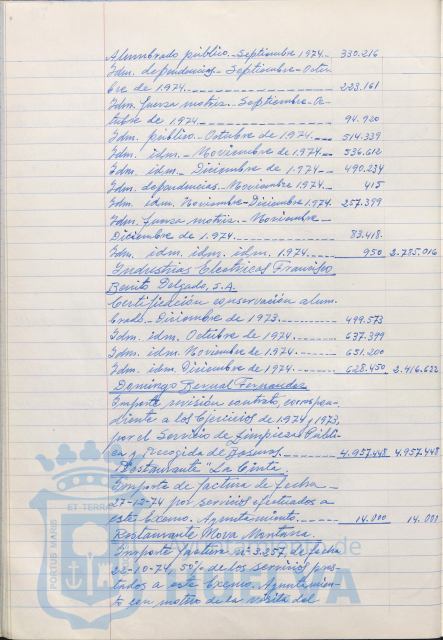 Alumbrado público.- Septiembre 1974.- 330.216
Idm. dependencias - Septiembre - Octu-
bre de 1.974.- 223.161
Idm. fuerza motriz - Septiembre - Oc-
tubre de 1.974 94.920
Idm. público - Octubre de 1.974 - 514.339
Idm. idm. - Noviembre de 1.974 - 536.612
Idm. idm. - Diciembre de 1.974 - 490.234
Idm. dependencias - Noviembre 1.974. 415
Idm. idm. Noviembre - Diciembre 1.974. 257.399
Idm. fuerza motriz - Noviembre -
Diciembre de 1.974. 83.418.
Idm. idm. idm. idm. 1.974. 950 2.785.016
Industrias Electricas Francisco
Benito Delgado, S.A.
Certificación conservación alum-
brado - Diciembre de 1973. 499.573
Idm. idm. Octubre de 1974. 637.399
Idm. idm. Noviembre de 1974. 651.200
Idm. idm. Diciembre de 1974. 628.450 2.416.622
Domingo Bernal Fernandez
Importe revisión contrato, correspon-
diente a los Ejercicios de 1.974 y 1973,
por el Servicio de Limpieza Públi-
ca y Recogida de Basuras. 4.957.448 4.957.448
Restaurante "La Cinta"
Importe de factura de fecha
27-12-74 por servicios efectuados a
este Excmo. Ayuntamiento. 14.000 14.000
Restaurante Nova Montana.
Importe factura nº 3.257, de fecha
22-10-74, 50% de los servicios pres-
tados a este Excmo. Ayuntamien-
to con motivo de la visita del
PORTUS MARIS
ET TERRAE
Ayuntamiento de
HUELVA